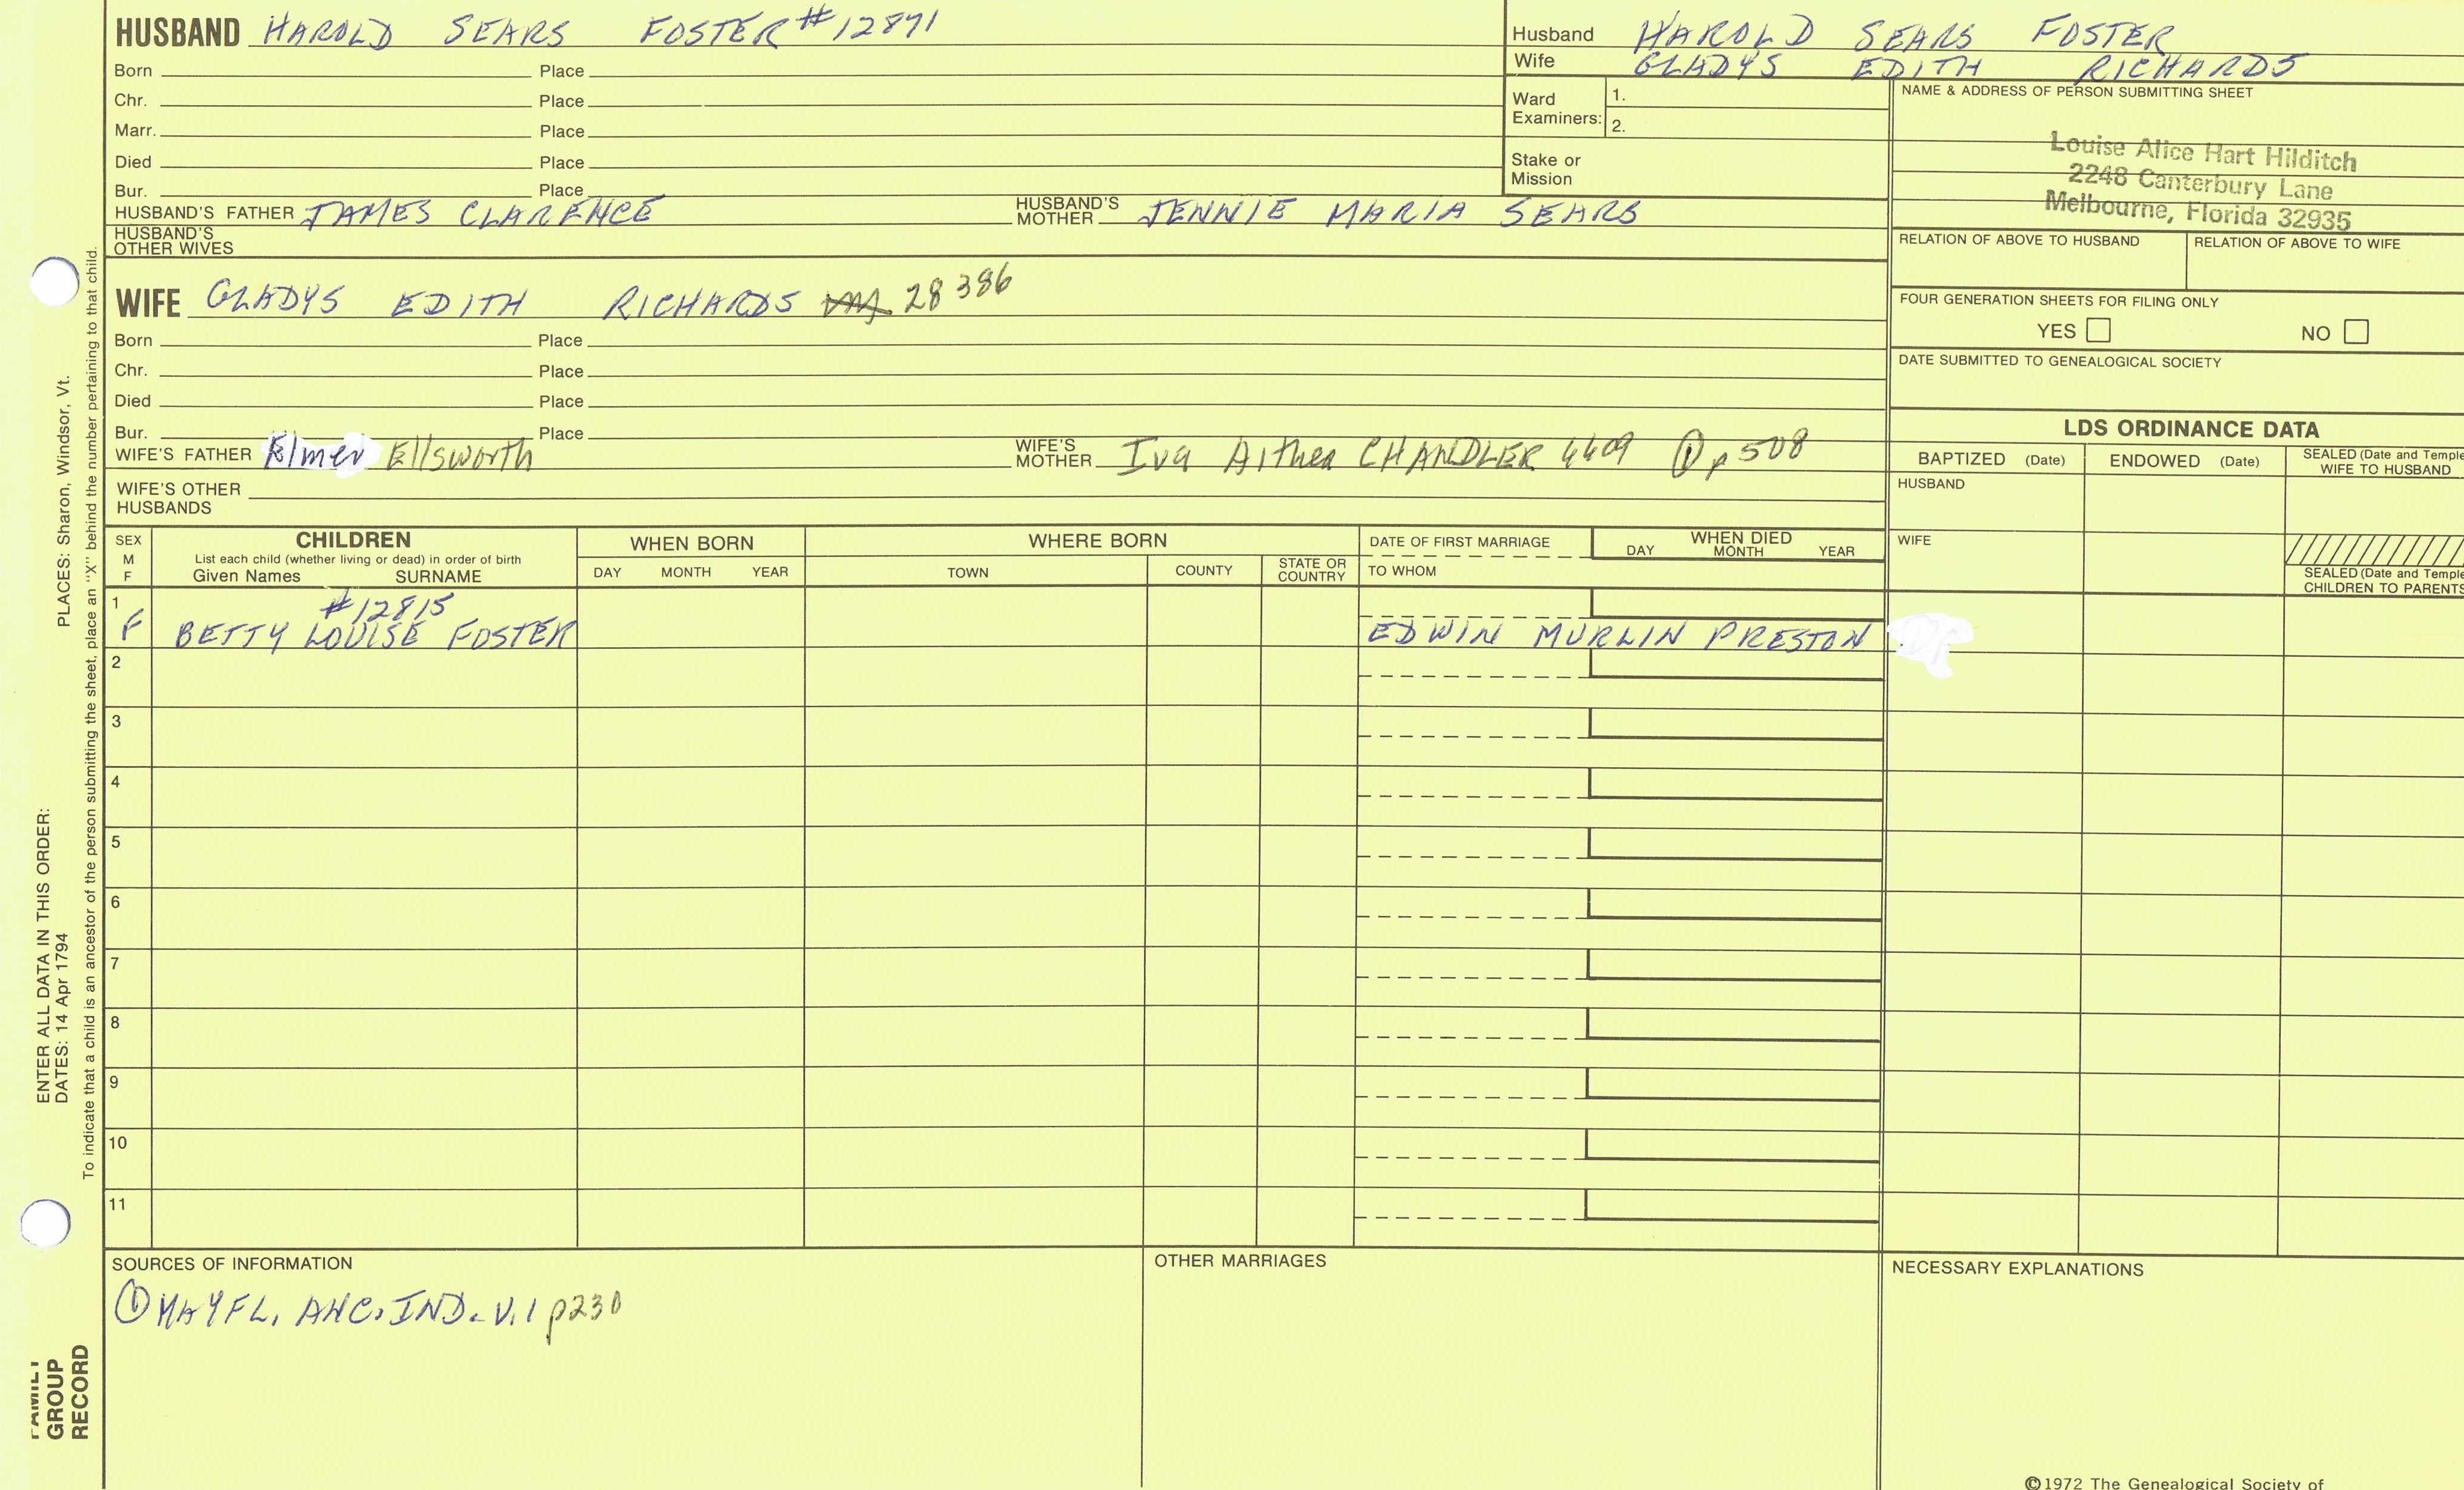 HUSBAND HAROLD SEARS FOSTER #12871
Born Place
Chr. Place
Marr. Place
Died Place
Bur. Place
HUSBAND'S FATHER JAMES CLARENCE HUSBAND'S MOTHER JENNIE MARIA SEARS
HUSBAND'S OTHER WIVES
WIFE GLADYS EDITH RICHARDS 28386
Born Place
Chr. Place
Died Place
Bur. Place
WIFE'S FATHER Elmer Ellsworth WIFE'S MOTHER Iva Aithea CHANDLER 4409 ① p 508
WIFE'S OTHER HUSBANDS
Husband HAROLD SEARS FOSTER
Wife GLADYS EDITH RICHARDS
Ward Examiners: 1.
2.
Stake or Mission
NAME & ADDRESS OF PERSON SUBMITTING SHEET
Louise Alice Hart Hilditch
2248 Canterbury Lane
Melbourne, Florida 32935
RELATION OF ABOVE TO HUSBAND RELATION OF ABOVE TO WIFE
FOUR GENERATION SHEETS FOR FILING ONLY
YES NO
DATE SUBMITTED TO GENEALOGICAL SOCIETY
LDS ORDINANCE DATA
BAPTIZED (Date) ENDOWED (Date) SEALED (Date and Temple
WIFE TO HUSBAND
HUSBAND
WIFE
SEALED (Date and Temple
CHILDREN TO PARENTS
SEX M F CHILDREN WHEN BORN WHERE BORN DATE OF FIRST MARRIAGE WHEN DIED
List each child (whether living or dead) in order of birth
Given Names SURNAME DAY MONTH YEAR TOWN COUNTY STATE OR COUNTRY TO WHOM DAY MONTH YEAR
1 #12815
F BETTY LOUISE FOSTER EDWIN MURLIN PRESTON
2
3
4
5
6
7
8
9
10
11
SOURCES OF INFORMATION
① MAYFL. ANC. IND. V.1 p230
OTHER MARRIAGES
NECESSARY EXPLANATIONS
©1972 The Genealogical Society of
ENTER ALL DATA IN THIS ORDER:
DATES: 14 Apr 1794 PLACES: Sharon, Windsor, Vt.
To indicate that a child is an ancestor of the person submitting the sheet, place an "X" behind the number pertaining to that child.
FAMILY
GROUP
RECORD